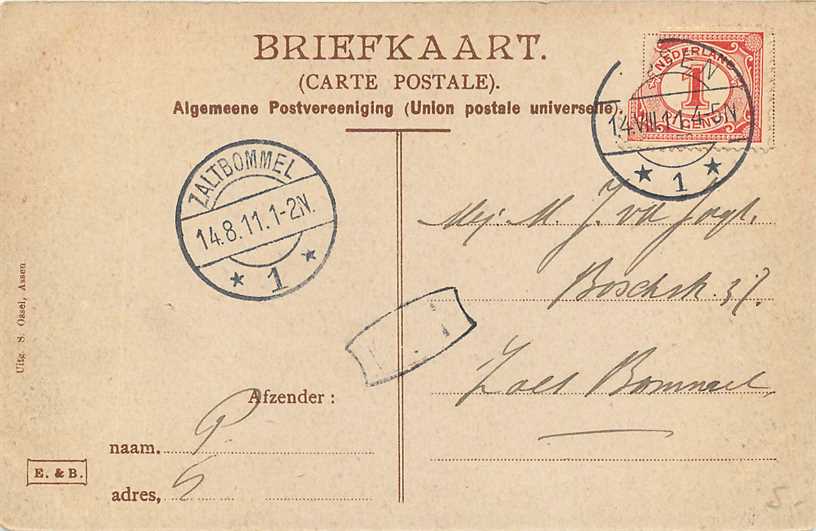 BRIEFKAART.
(CARTE POSTALE).
Algemeene Postvereeniging (Union postale universelle).
NEDERLAND
1
CENT
EN
14.VIII.11.4-5.N
1
ZALTBOMMEL
14.8.11.1-2N.
1
Mej. M. J. vd Jagt.
Boschstr. 37.
Zalt Bommel
Afzender :
naam. P.
adres, S
Uitg. S. Ossel, Assen
E. & B.
5.-